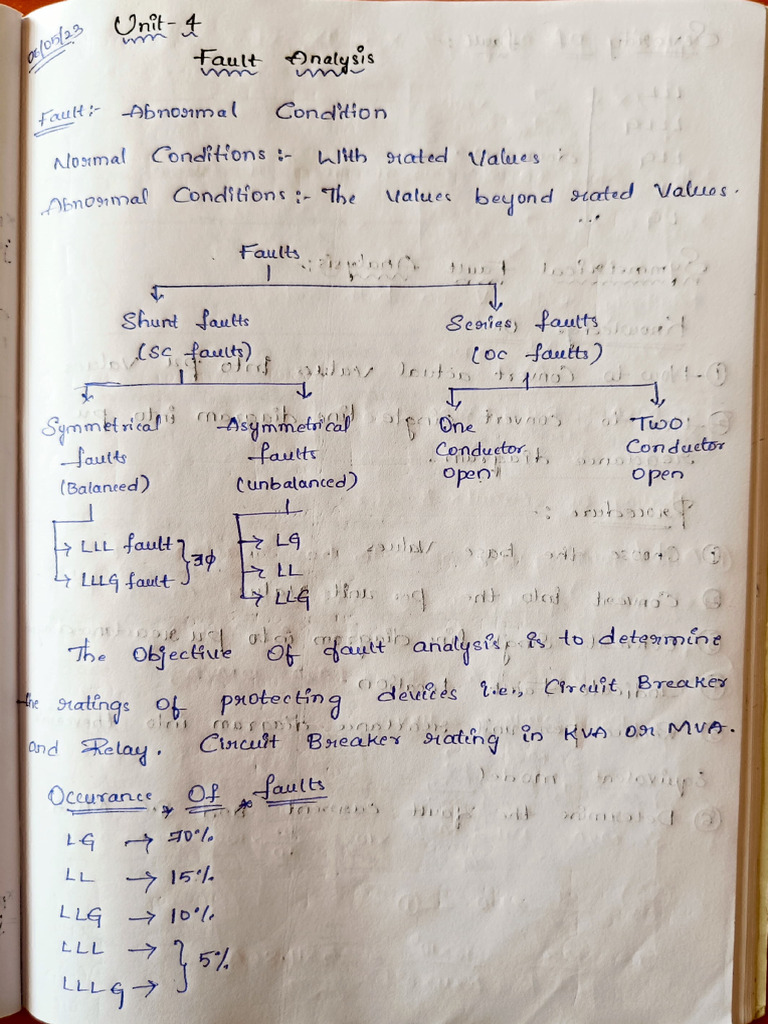 06/05/23
Unit-4
Fault Analysis
Fault:- Abnormal Condition
Normal Conditions:- With rated values
Abnormal Conditions:- The values beyond rated values.
Faults
Shunt faults Series, faults
(SC faults) (OC faults)
Symmetrical Asymmetrical One Two
faults faults Conductor Conductor
(Balanced) (unbalanced) Open Open
LLL fault LG
LLLG fault } 3φ LL
LLG
The Objective Of fault analysis is to determine
the ratings of protecting devices i.e., Circuit Breaker
and Relay. Circuit Breaker rating in KVA or MVA.
Occurance Of faults
LG → 70%
LL → 15%
LLG → 10%
LLL →
LLLG → } 5%